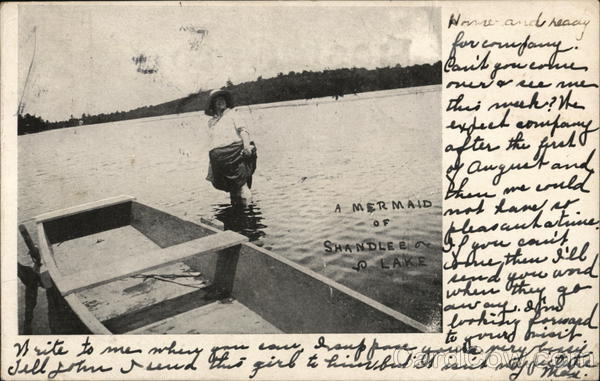 Home and ready
for company.
Can't you come
over & see me
this week? We
expect company
after the first
of August and
then we would
not have so
pleasant a time.
If you can't
come, then I'll
send you word
when they go
away. I'm
looking forward
to your visit
A MERMAID
OF
SHANDLEE
LAKE
Write to me when you can, I suppose you're very busy.
Tell John I send this girl to him, but
CardCow.com